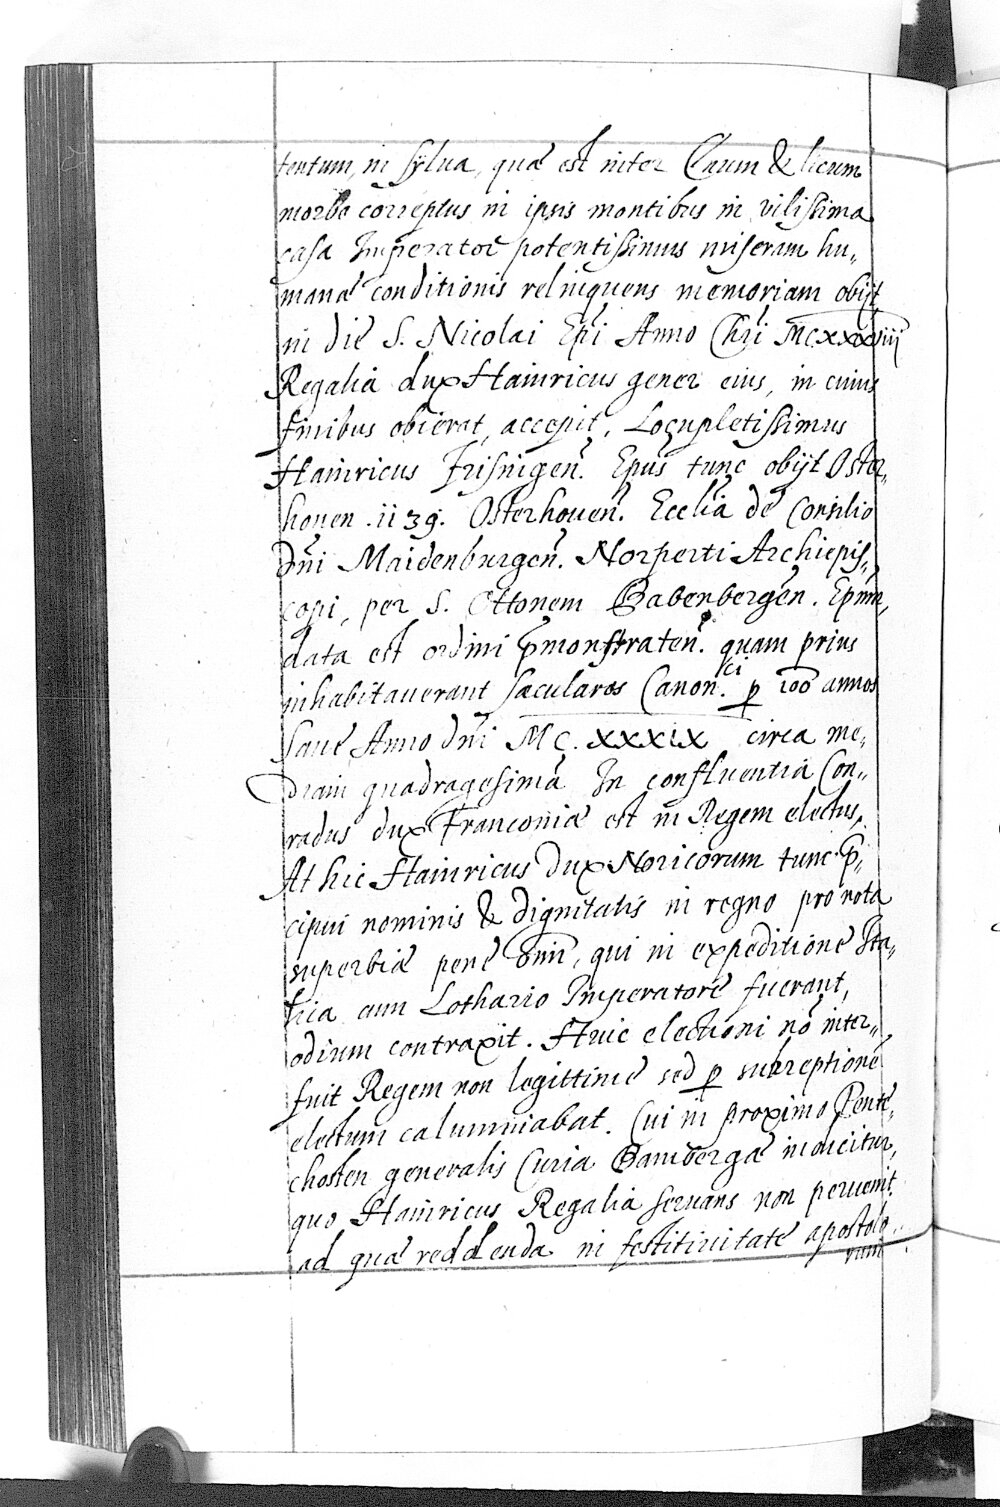 tentum, in sylua, quæ est inter Œnum & licum
morbo correptus in ipsis montibus in vilissima
casa Imperator potentissimus miseram hu„
manæ conditionis relinquens memoriam obijt
in die S. Nicolai Epi Anno Chri MCXXXVIII
Regalia dux Hainricus gener eius, in cuius
finibus obierat, accepit, Locupletissimus
Hainricus Frisingen. Epus tunc obijt Oster„
houen .1139. Osterhouen. Ecclia de Consilio
dni Maidenburgen. Norperti Archiepis„
copi, per S. Ottonem Babenbergen. Epum,
data est ordini p̄monstraten. quam prius
inhabitauerant sæculares Canonci. p 100 annos
Sane Anno dni MC.XXXIX circa me„
diam quadragesimā In confluentia Con„
radus dux Franconiæ est in Regem electus,
At hic Hainricus Dux Noricorum tunc p̄„
cipui nominis & dignitatis in regno pro nota
superbiæ penè oīm, qui in expeditione Ita„
lica cum Lothario Imperatore fuerant,
odium contraxit. Huic electioni nō inter„
fuit Regem non legittimè sed p subreptionē
electum calumniabat. Cui in proximo Pente„
chosten generalis Curia Bambergæ indicitur,
quo Hainricus Regalia seruans non peruenit.
ad quæ reddenda in festiuitate apostolo„
rum